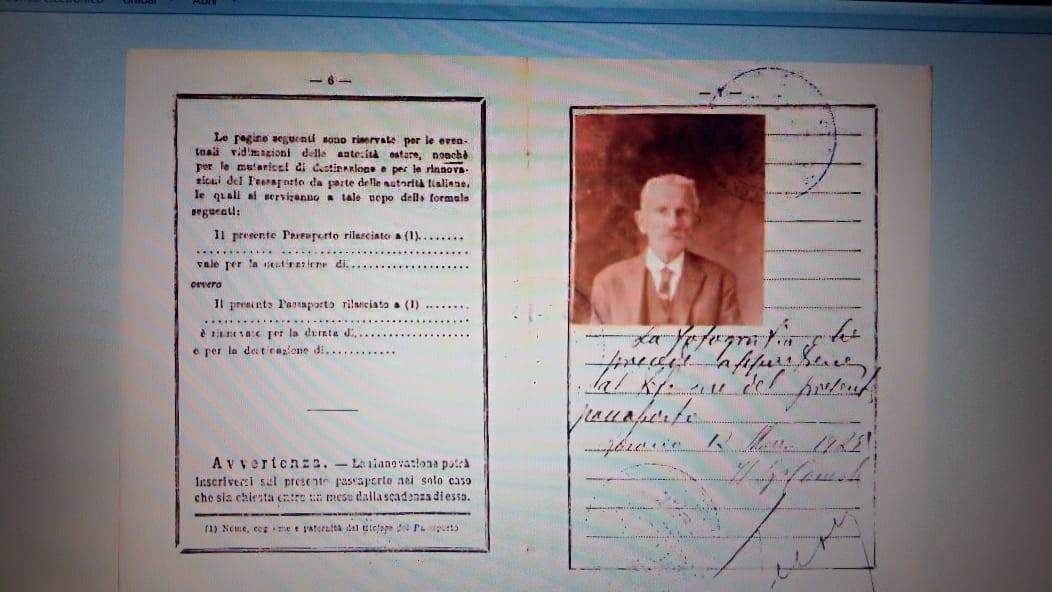 — 6 —
Le pagine seguenti sono riservate per le even-
tuali vidimazioni delle autorità estere, nonchè
per le mutazioni di destinazione e per le rinnova-
zioni del Passaporto da parte delle autorità italiane,
le quali si serviranno a tale uopo delle formule
seguenti:
Il presente Passaporto rilasciato a (1)........
vale per la destinazione di...............
ovvero
Il presente Passaporto rilasciato a (1) .......
è rinnovato per la durata di.................
e per la destinazione di............
Avvertenza. — La rinnovazione potrà
inscriversi sul presente passaporto nel solo caso
che sia chiesta entro un mese dalla scadenza di esso.
(1) Nome, cognome e paternità del titolare del Passaporto
La fotografia che
precede appartiene
al titolare del presente
passaporto
12 1925